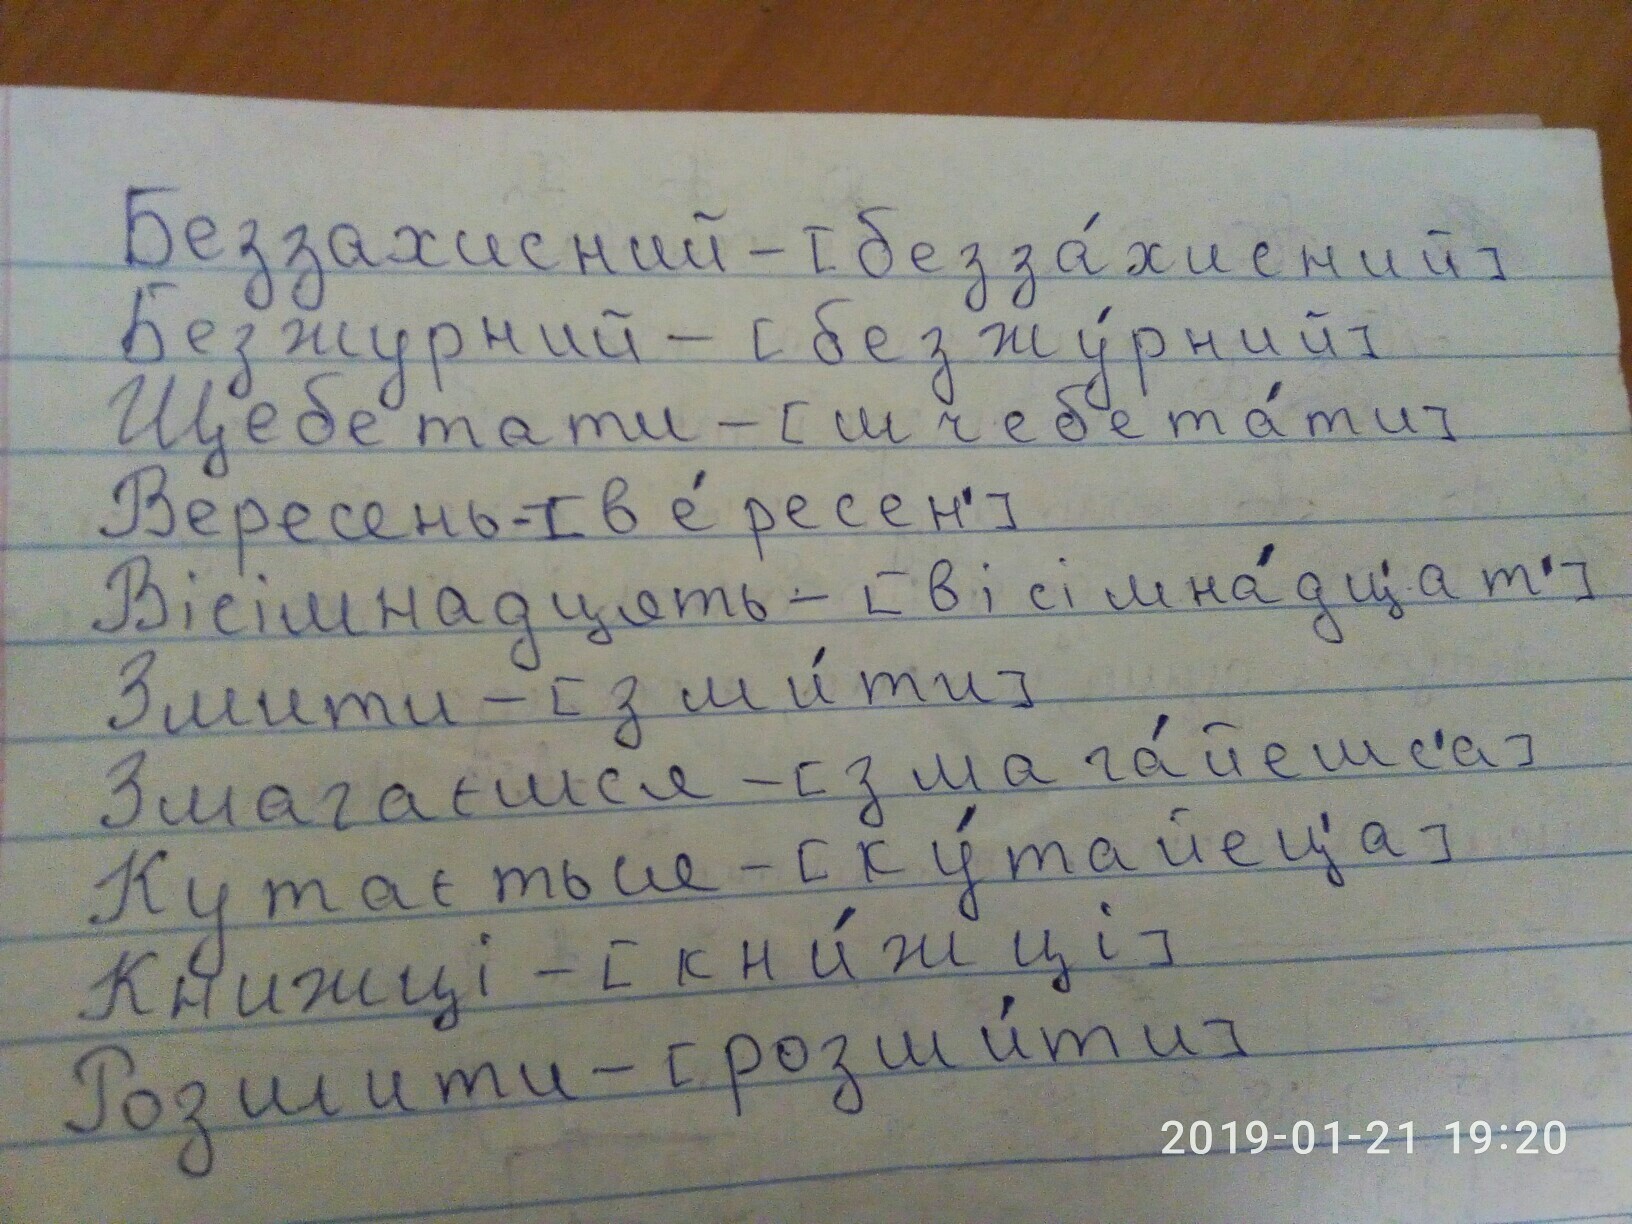 Беззахисний – [безза́хисний]
Безжурний – [безжу́рний]
Щебетати – [шчебета́ти]
Вересень - [ве́ресен']
Вісімнадцять – [вісімна́дц'ат']
Змити – [зми́ти]
Змагаєшся – [змага́йешс'а]
Кутається – [ку́тайец'а]
Книжці – [кни́жці]
Розшити – [розши́ти]
2019-01-21 19:20